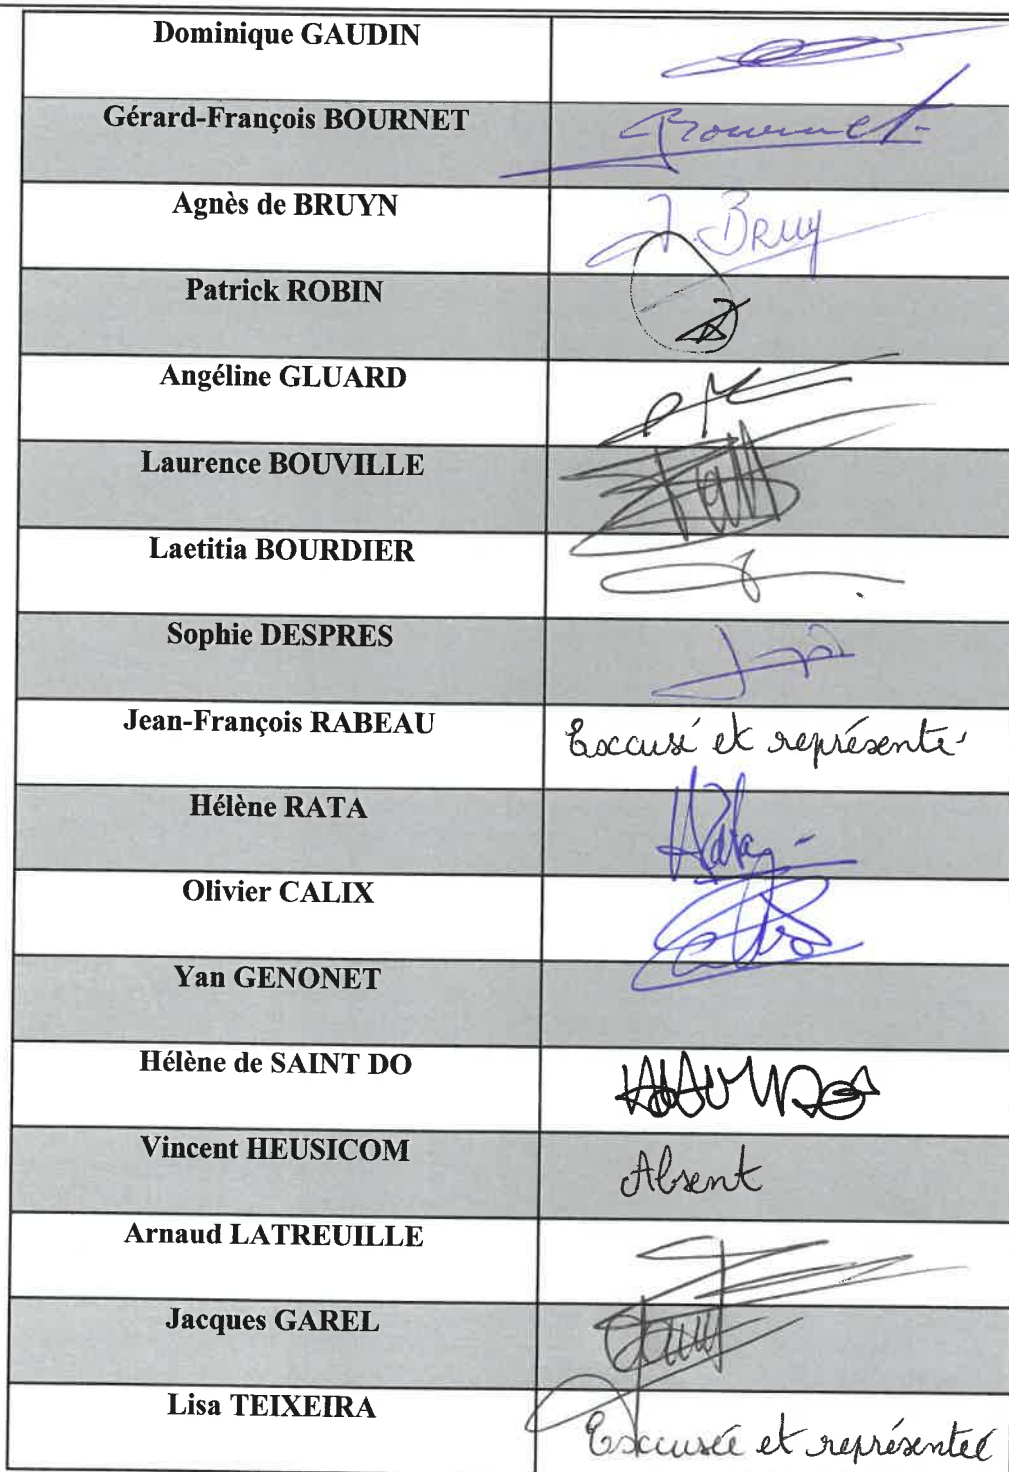 Dominique GAUDIN
Gérard-François BOURNET
Agnès de BRUYN
Bruy
Patrick ROBIN
Angéline GLUARD
Laurence BOUVILLE
Laetitia BOURDIER
Sophie DESPRES
Jean-François RABEAU
Excusé et représenté
Hélène RATA
Olivier CALIX
Yan GENONET
Hélène de SAINT DO
Vincent HEUSICOM
Absent
Arnaud LATREUILLE
Jacques GAREL
Lisa TEIXEIRA
Excusée et représentée